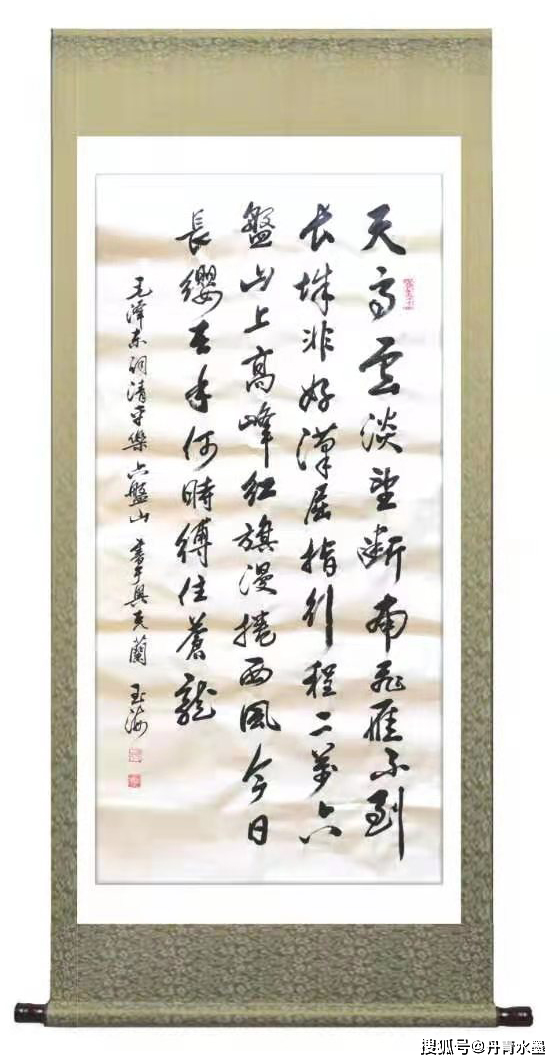 天高雲淡望斷南飛雁不到
长城非好漢屈指行程二萬六
盤山上高峰红旗漫捲西風今日
長纓在手何時縛住蒼龍
毛澤东詞清平樂六盤山 書于奥克蘭 玉海
搜狐号@丹青水墨